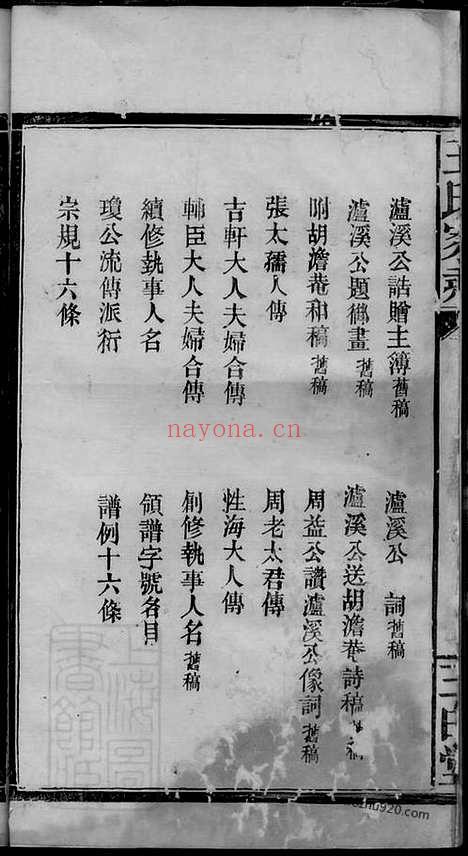 瀘溪公誥贈主簿舊稿
瀘溪公　詞舊稿
瀘溪公題鄉畫舊稿
瀘溪公送胡澹菴詩稿舊稿
附胡澹菴和稿舊稿
周益公讚瀘溪公像詞舊稿
張太孺人傳
周老太君傳
吉軒大人夫婦合傳
性海大人傳
輔臣大人夫婦合傳
創修執事人名舊稿
續修執事人名
領譜字號名目
瓊公流傳派衍
譜例十六條
宗規十六條
王氏家乘
三
nayona.cn